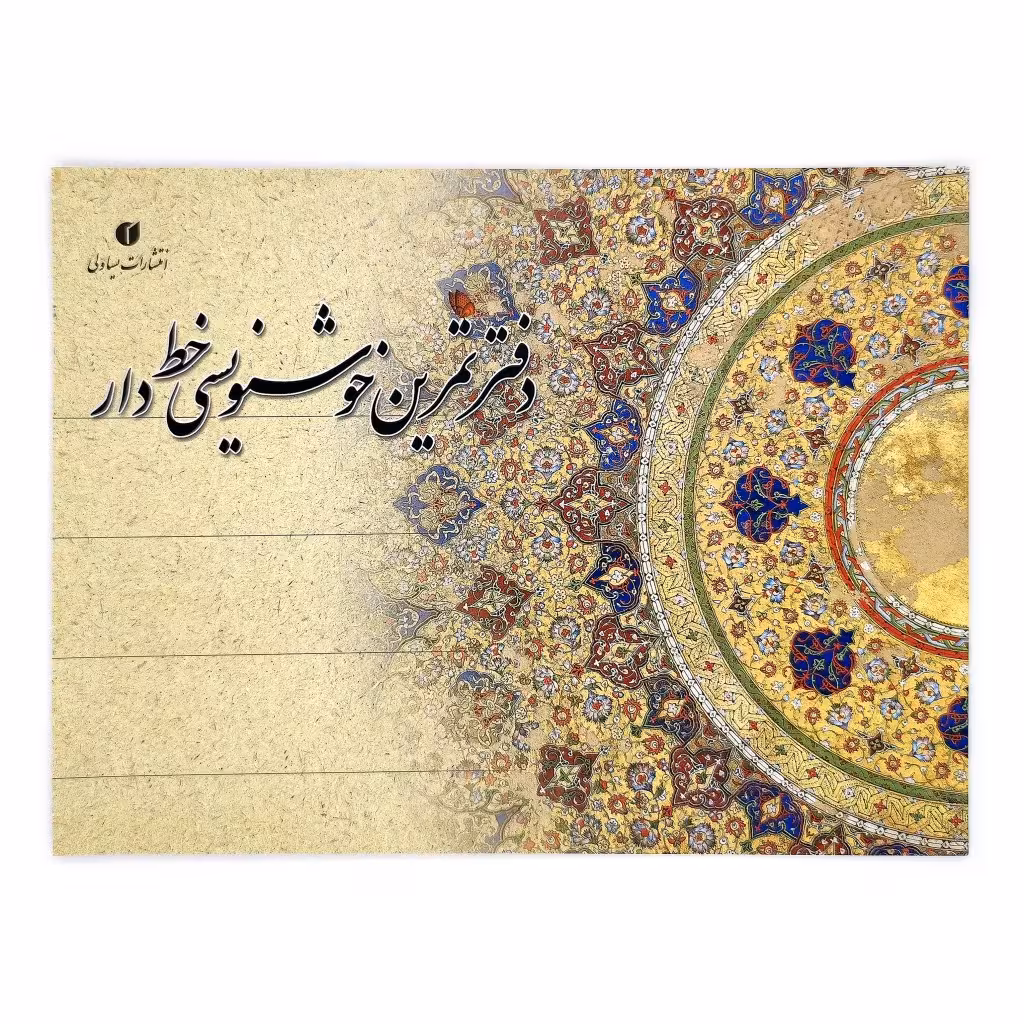 انتشارات یساولی
دفتر تمرین خوشنویسی خط دار